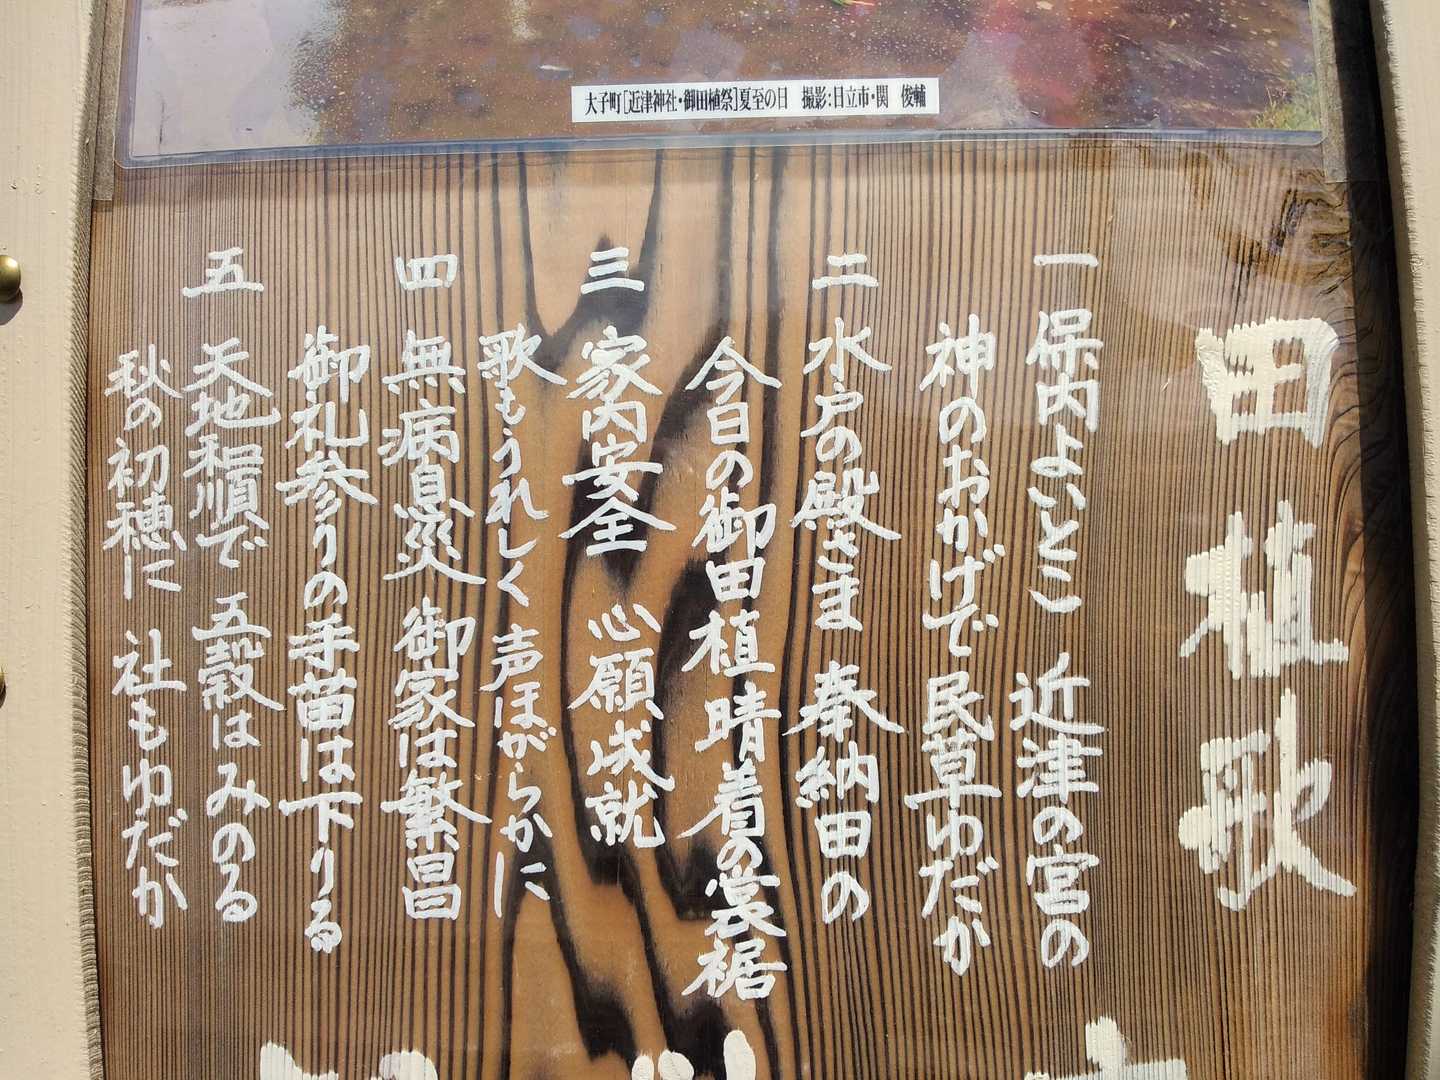 大子町[近津神社・御田植祭]夏至の日　撮影:日立市・関　俊輔
田植歌
一　保内よいとこ　近津の宮の
神のおかげで　民草ゆだか
二　水戸の殿さま　奉納田の
今日の御田植　晴着の裳裾
三　家内安全　心願成就
歌もうれしく　声ほがらかに
四　無病息災　御家は繁昌
御礼参りの　手苗は下りる
五　天地和順で　五穀はみのる
秋の初穂に　社もゆだか